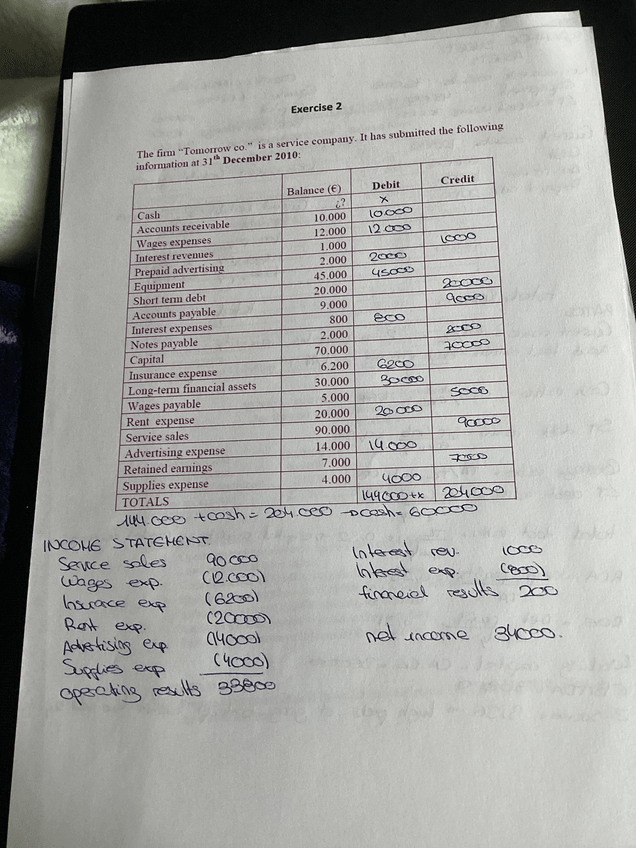 Exercise 2
The firm "Tomorrow co." is a service company. It has submitted the following
information at 31th December 2010:
Balance (€) Debit Credit
Cash ¿? x
Accounts receivable 10.000 10000
Wages expenses 12.000 12000
Interest revenues 1.000 1000
Prepaid advertising 2.000 2000
Equipment 45.000 45000
Short term debt 20.000 20000
Accounts payable 9.000 9000
Interest expenses 800 800
Notes payable 2.000 2000
Capital 70.000 70000
Insurance expense 6.200 6200
Long-term financial assets 30.000 30000
Wages payable 5.000 5000
Rent expense 20.000 20000
Service sales 90.000 90000
Advertising expense 14.000 14000
Retained earnings 7.000 7000
Supplies expense 4.000 4000
TOTALS 144000+x 204000
144.000 + cash = 204.000 → cash = 60000
INCOME STATEMENT
Service sales 90000 Interest rev. 1000
Wages exp. (12.000) Interest exp. (800)
Insurace exp (6200) financial results 200
Rent exp. (20000)
Advertising exp (14000) net income 34000.
Supplies exp (4000)
operating results 33800